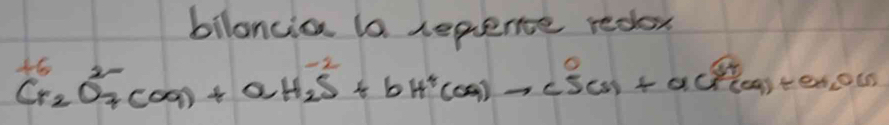 bilancia la seguente redox
+6 -2 0
Cr₂O₇²⁻(aq) + aH₂S + bH⁺(aq) → cS(s) + dCr³⁺(aq) + eH₂O(l)